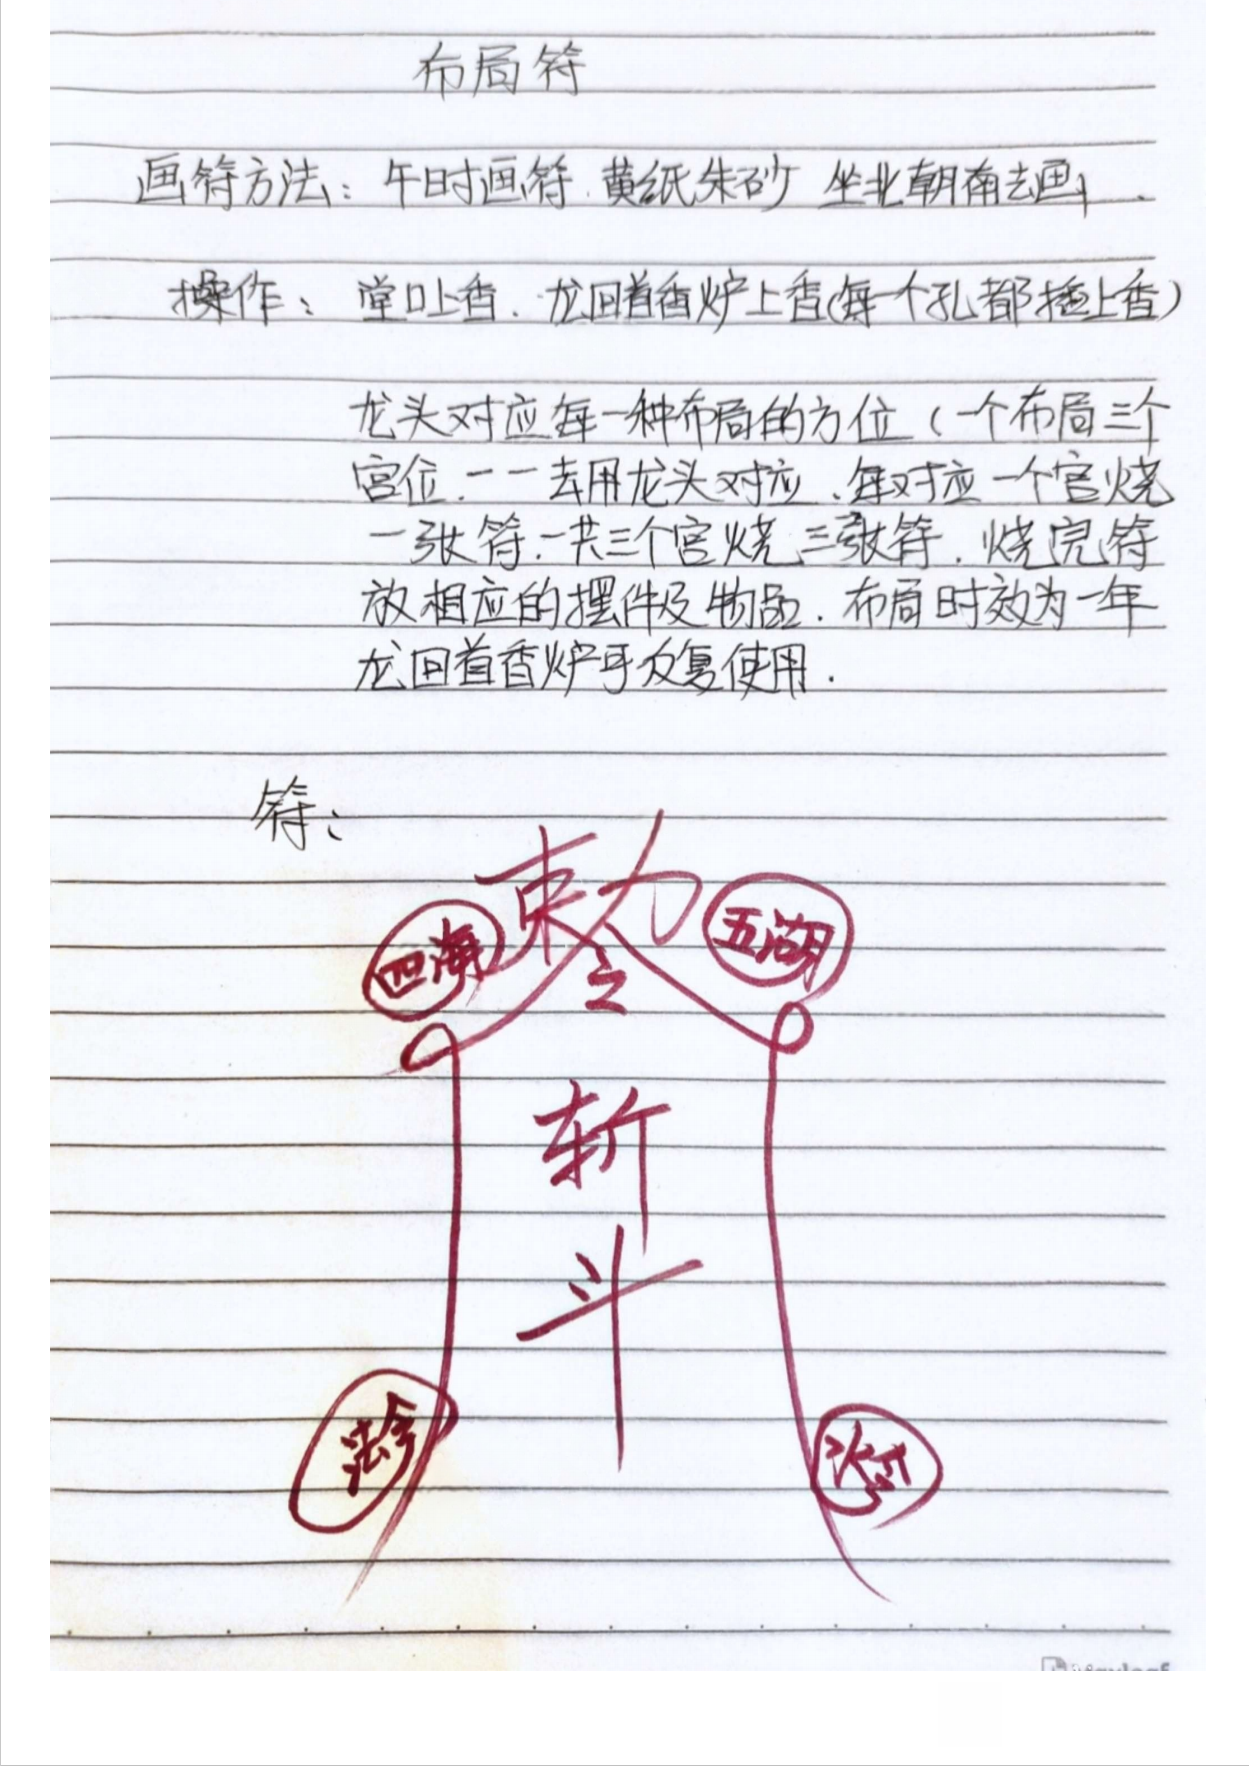 布局符
画符方法：午时画符.黄纸朱砂 坐北朝南去画.
操作：堂口上香.龙回首香炉上香(每一个孔都插上香)
龙头对应每一种布局的方位（一个布局三个
宫位.一一去用龙头对应.每对应一个宫烧
一张符.一共三个宫烧三张符.烧完符
放相应的摆件及物品.布局时效为一年
龙回首香炉可反复使用.
符：
敕
四海 五湖
令
斩
斗